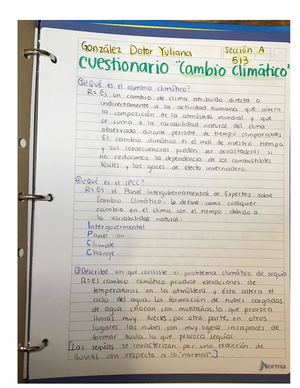 González Dotor Yuliana Sección A
513
Cuestionario "Cambio Climático"
① ¿Qué es el cambio climático?
R= Es un cambio de clima atribuido directa o
indirectamente a la actividad humana que altera
la composición de la atmósfera mundial y que
se suma a la variabilidad natural del clima
observada durante periodos de tiempo comparables
El cambio climático es el mal de nuestro tiempo
y sus consecuencias pueden ser devastadoras si
no reducimos la dependencia de los combustibles
fósiles y los gases de efecto invernadero
② ¿Qué es el IPCC?
R= Es el Panel Intergubernamental de Expertos sobre
Cambio Climático, lo define como cualquier
cambio en el clima con el tiempo debido a
la variabilidad natural.
Intergovernmental
Panel on
Climate
Change
③ Describe en qué consiste el problema climático de sequía
R= El cambio climático produce elevaciones de
temperaturas en la atmósfera y esto altera el
ciclo del agua. La formación de nubes cargadas
de agua chocan con montañas, lo que provoca
lluvias muy fuertes por otra parte, en otros
lugares las nubes son muy ligeras incapaces de
formar lluvia, lo que provoca sequías
[Las sequías se caracterizan por una reducción de
lluvias con respecto a lo "normal"]
Norma